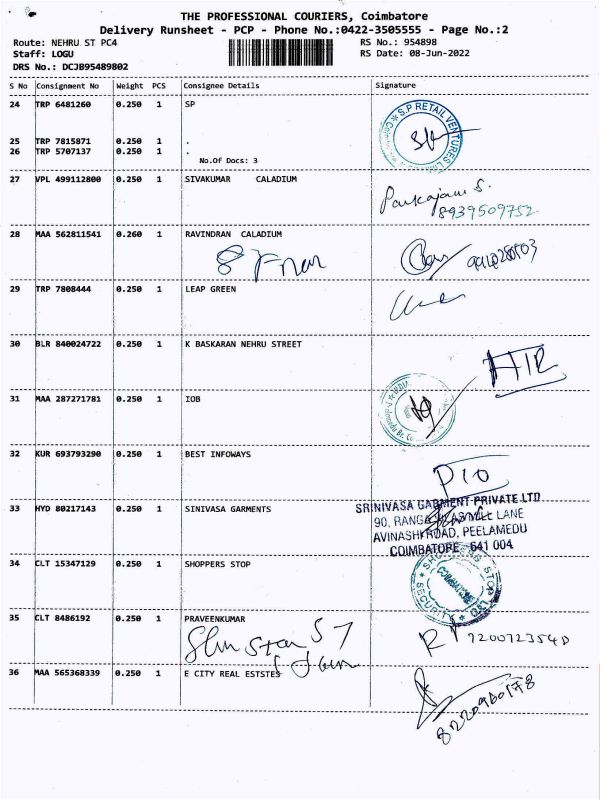 THE PROFESSIONAL COURIERS, Coimbatore
Delivery Runsheet - PCP - Phone No.:0422-3505555 - Page No.:2
Route: NEHRU ST PC4 RS No.: 954898
Staff: LOGU RS Date: 08-Jun-2022
DRS No.: DCJB95489802
S No Consignment No Weight PCS Consignee Details Signature
24 TRP 6481260 0.250 1 SP
S.P RETAIL VENTURES
25 TRP 7815871 0.250 1 .
26 TRP 5707137 0.250 1 .
No.Of Docs: 3
27 VPL 499112800 0.250 1 SIVAKUMAR CALADIUM
8939509752
28 MAA 562811541 0.260 1 RAVINDRAN CALADIUM
29 TRP 7808444 0.250 1 LEAP GREEN
30 BLR 840024722 0.250 1 K BASKARAN NEHRU STREET
31 MAA 287271781 0.250 1 IOB
32 KUR 693793290 0.250 1 BEST INFOWAYS
33 HYD 80217143 0.250 1 SINIVASA GARMENTS
SRINIVASA GARMENT PRIVATE LTD
AVINASHI ROAD, PEELAMEDU
COIMBATORE - 641 004
34 CLT 15347129 0.250 1 SHOPPERS STOP
SHOPPERS STOP LTD
COIMBATORE
SECURITY
35 CLT 8486192 0.250 1 PRAVEENKUMAR
36 MAA 565368339 0.250 1 E CITY REAL ESTSTES